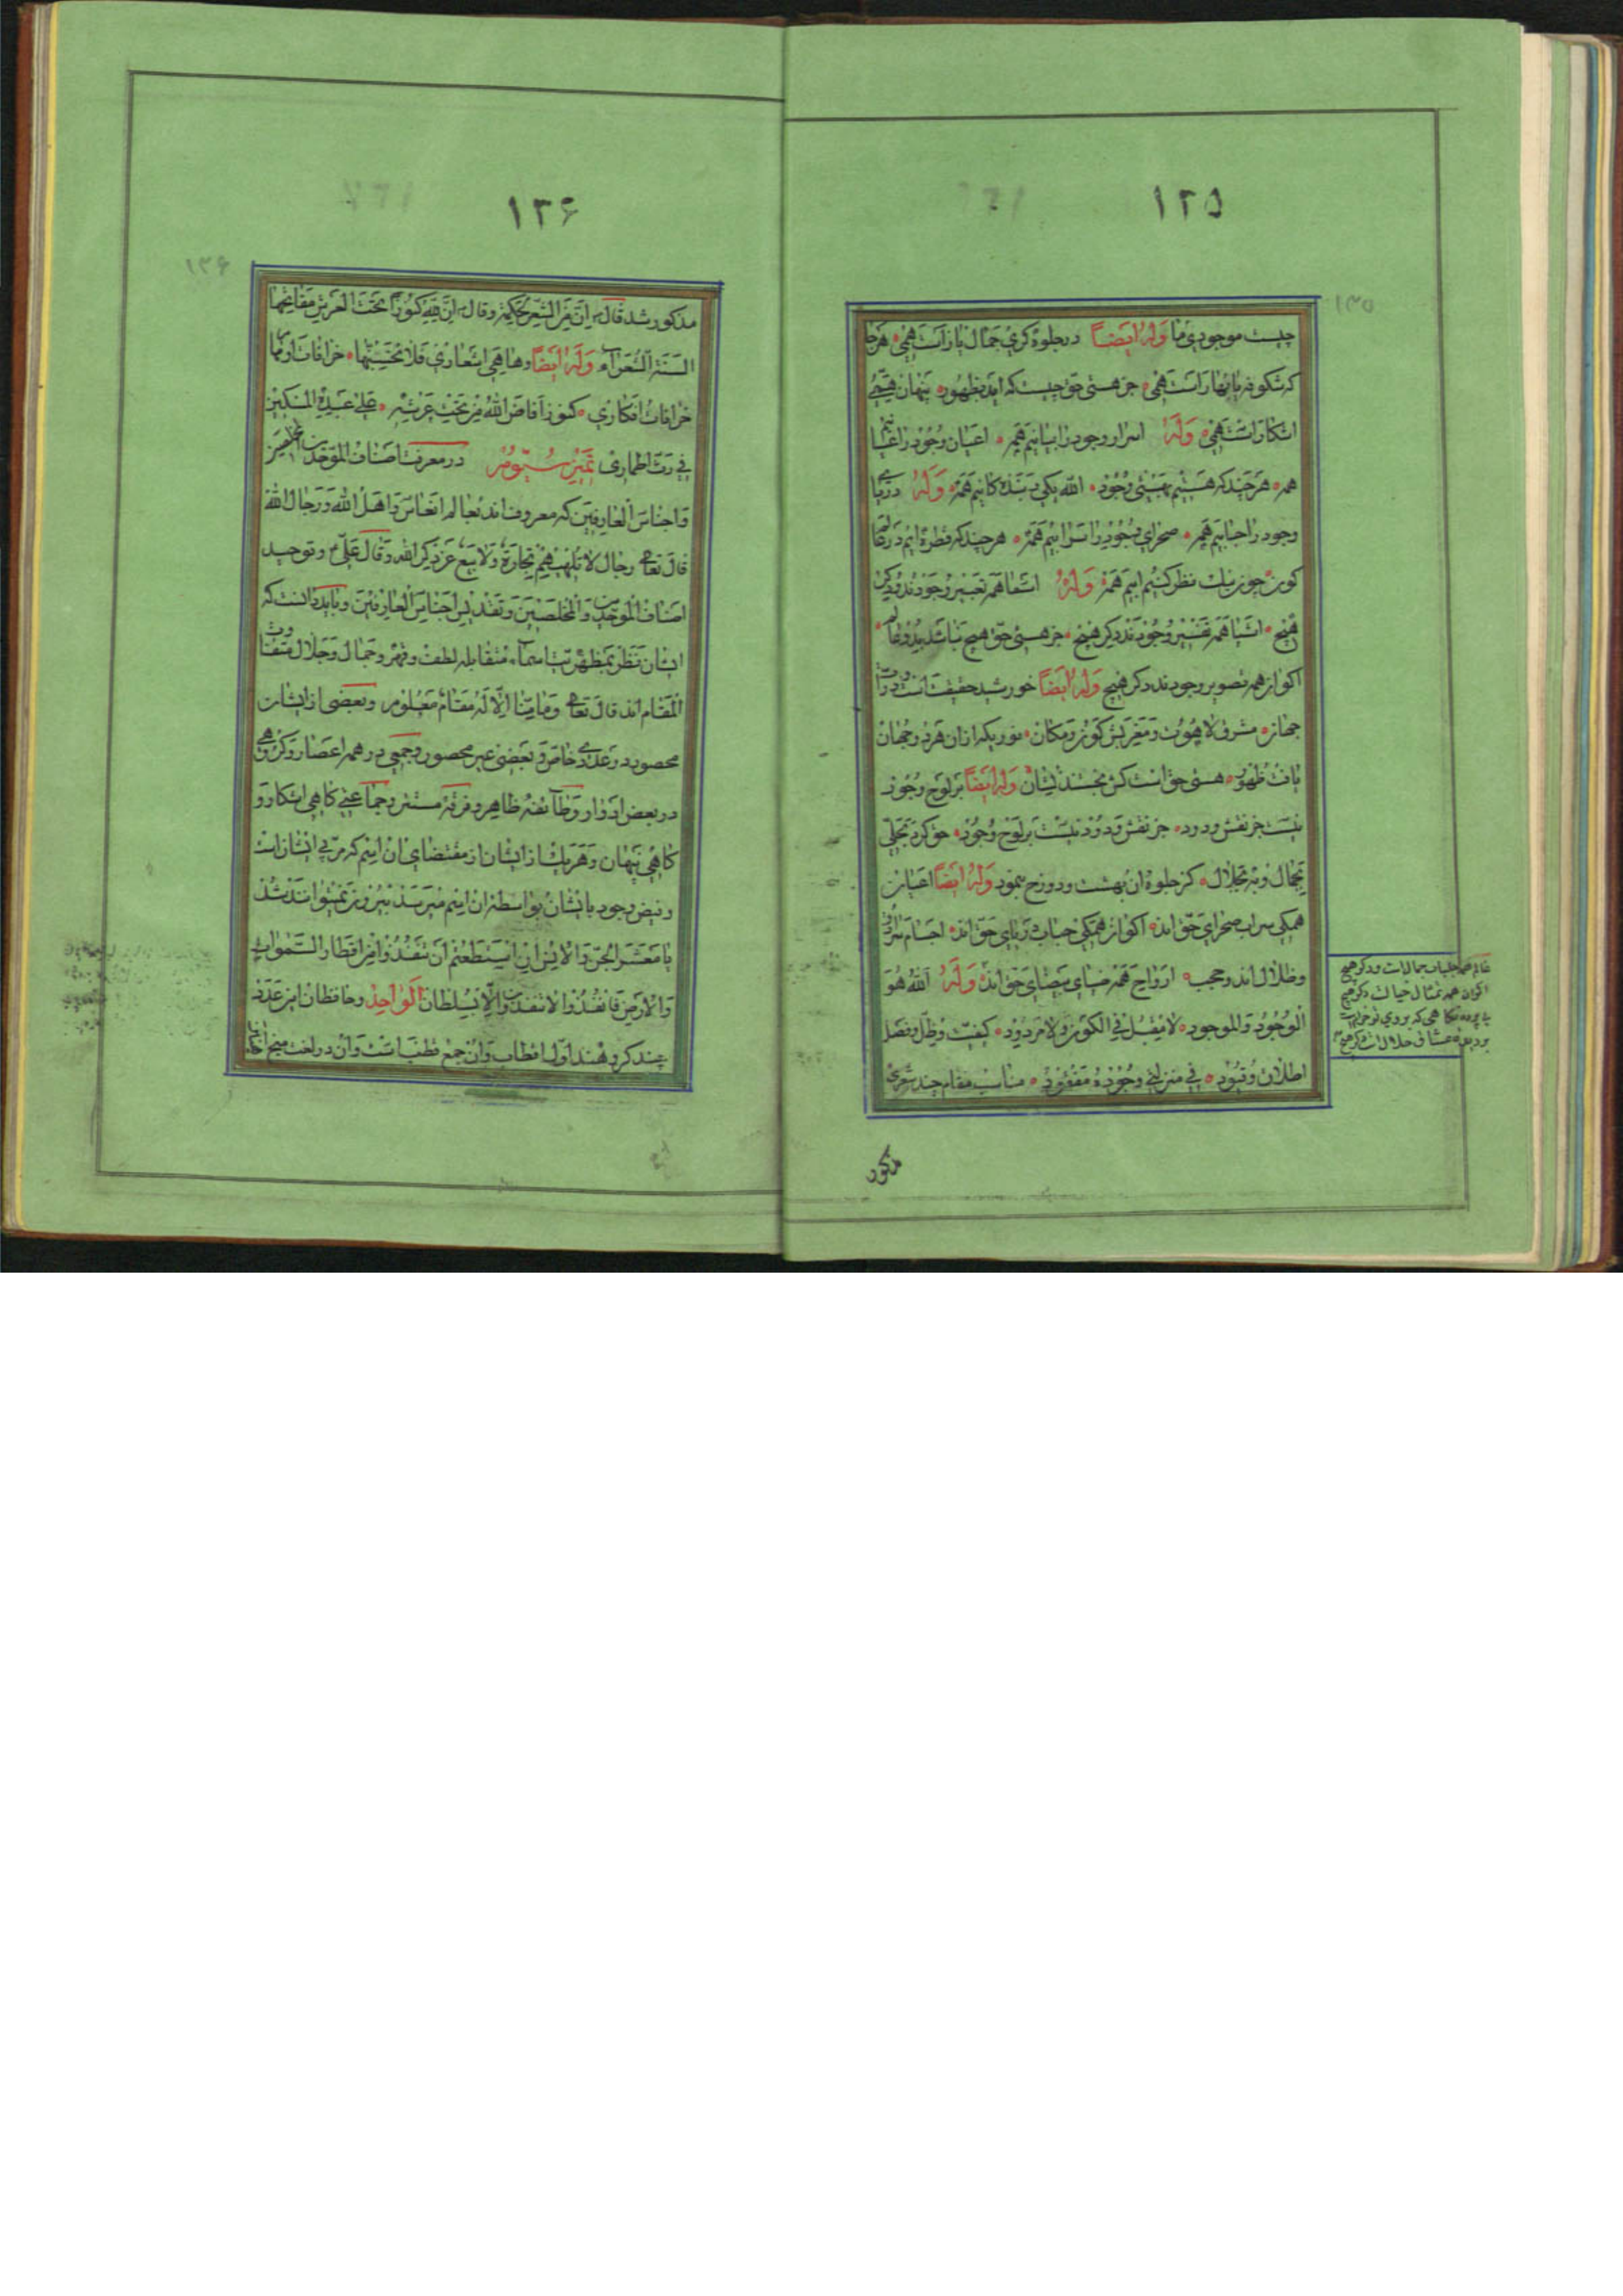 ۱۳۵
۱۲۵
چیست موجودی ما وله ایضا در جلوه کری جمال یارات همی هرجا
که شکوفه یا بهارات همی جز هستی حق چیست که اید بظهور پنهان
اشکارات همی وله اسرار وجود را بیانیم همه اعیان وجود را
همه هرچند که هستیم بهستی وجود الله یکی و بنده کانیم همه وله دریای
وجود را حبابیم همه صحرای وجود را سرابیم همه هرچند که قطره ایم در
کون چون نیک نظر کنیم ابیم همه وله اشعا همه تعبیر وجودند و دکر
هیچ اشیا همه تفسیر وجودند دکر هیچ جز هستی حق هیچ نباشد
اکوان همه تصویر وجودند دکر هیچ وله ایضا خورشید حقیقت
جهان مشرق لاهوت و مغربش کون و مکان نوریکه ازان هر دو جهان
یافت ظهور هستی حق است کش نجستند نشان وله ایضا بر لوح وجود
نیست جز نقش ودود جز نقش ودود نیست بر لوح وجود حق کرد تجلی
بجمال و به جلال کز جلوه ان بهشت و دوزخ بنمود وله ایضا اعیان
همکی سراب صحرای حق اند اکوان همکی حباب دریای حق اند اجسام
و ظلال اند و حجب ارواح همه ضیای بیضای حق اند وله الله هو
الوجود والموجود لا یقبل فی الکون ولا مردود کیفیت وظل وفصل
اطلاق و قیود فی منزلتی وجوده مفقود مناسب مقام چند شعری
مذکور
اکوان همه تمثال خیال دکر هیچ
۱۳۶
۱۳۶
مذکور شد قال ان من الشعر لحکمة وقال ان لله کنوزا تحت العرش مفاتیحها
السنة الشعراء وله ایضا وها هی اشعاری فلا تحسبنها خرافات
خرافات افکاری کنوز افاض الله من تحت عرشه علی عبده المسکین
فی رث اطماری تمیز سیوم در معرفت اصناف الموحدین
و اجناس العارفین که معروف اند برجال انفاس و اهل الله و رجال الله
قال تعالی رجال لا تلهیهم تجارة ولا بیع عن ذکر الله وقال علی و توحید
اصناف الموحدین و المخلصین و تقدیس اجناس العارفین و باید دانست که
ایشان نظر بمظهریت اسماء متقابله لطف و قهر و جمال و جلال
المقام اند قال تعالی وما منا الا له مقام معلوم و بعضی از ایشان
محصور در عددی خاص و بعضی غیر محصور و جمعی در همه اعصار و کروهی
در بعض ادوار و طائفه ظاهر و فرقه مستتر و جماعتی کاهی اشکار و
کاهی پنهان و هر یک از ایشان از مقتضای ان اسم که مربی ایشان است
و فیض وجود بایشان بواسطه ان اسم میرسد بیرون نمیتوانند شد
یا معشر الجن والانس ان استطعتم ان تنفذوا من اقطار السموات
والارض فانفذوا لا تنفذون الا بسلطان الواحد و حافظان این عدد
چند کروهند اول اقطاب و ان جمع قطب است و ان در لغت